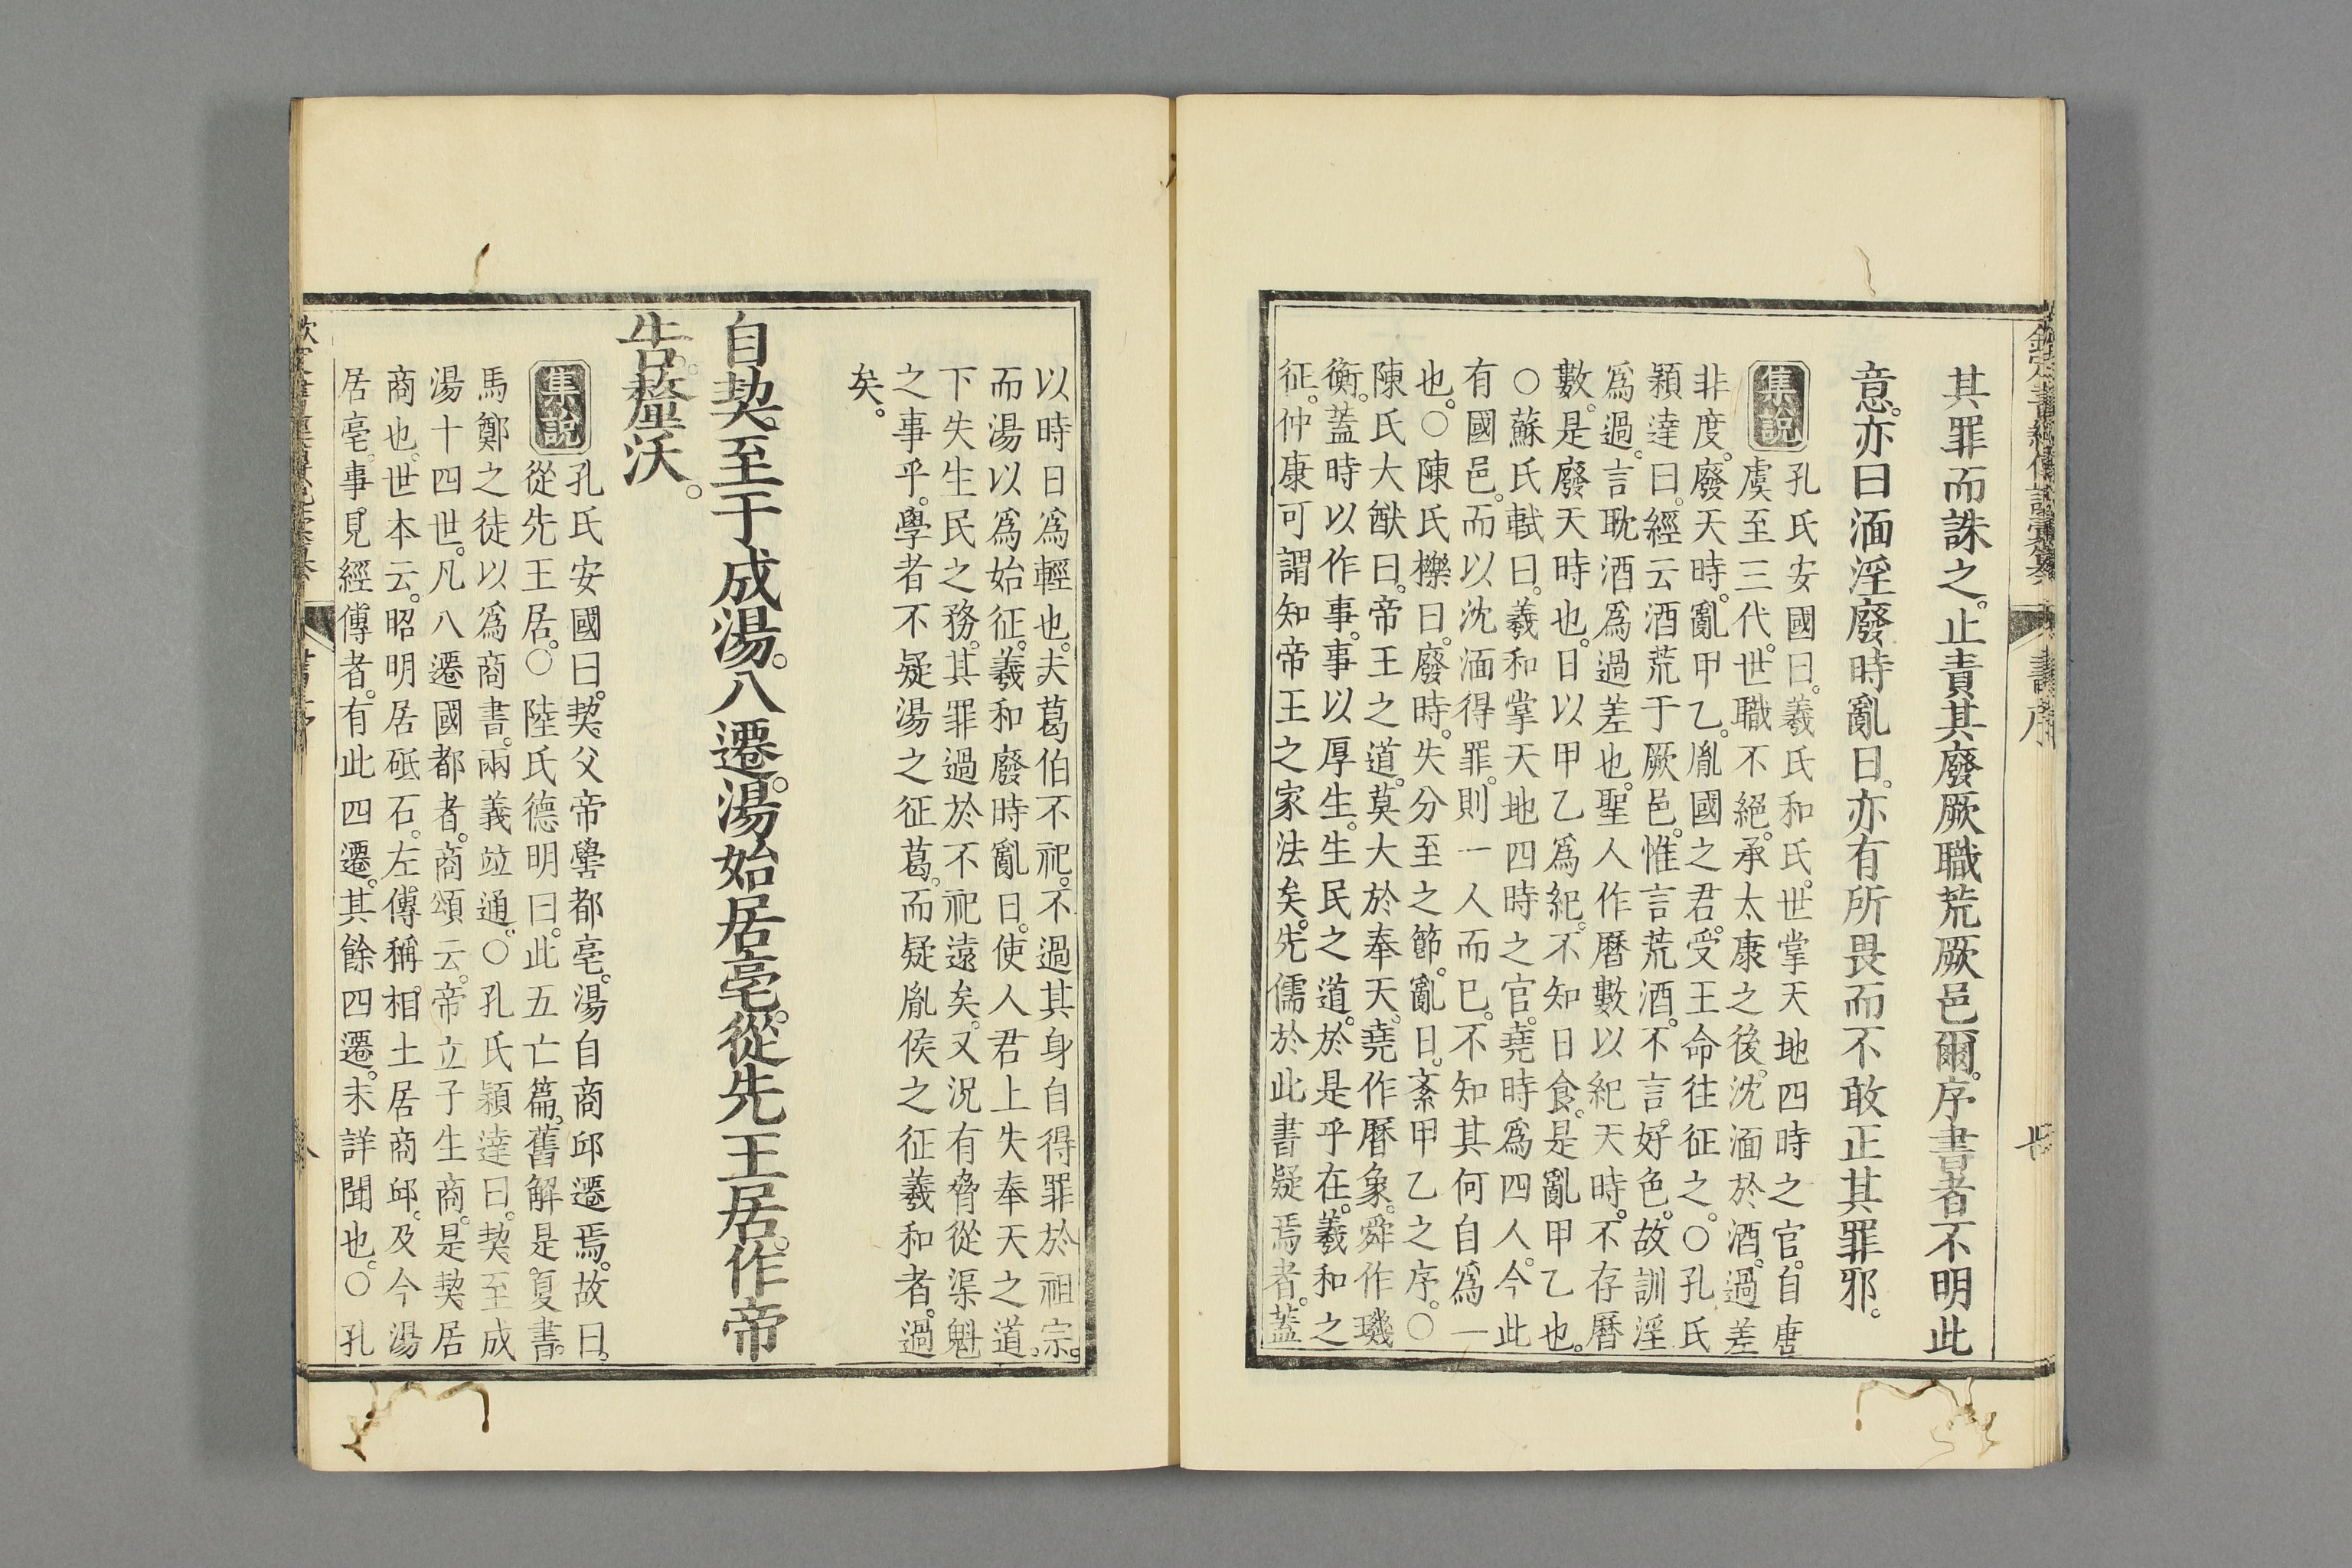 其罪而誅之。止責其廢厥職荒厥邑爾。序書者不明此
意。亦曰湎淫廢時亂日。亦有所畏而不敢正其罪邪。
集說
孔氏安國曰。羲氏和氏。世掌天地四時之官。自唐
虞至三代。世職不絕。承太康之後。沈湎於酒。過差
非度。廢天時。亂甲乙。胤國之君。受王命往征之。○孔氏
穎達曰。經云酒荒于厥邑。惟言荒酒。不言好色。故訓淫
爲過。言耽酒爲過差也。聖人作曆數以紀天時。不存曆
數。是廢天時也。日以甲乙爲紀。不知日食。是亂甲乙也。
○蘇氏軾曰。羲和掌天地四時之官。堯時爲四人。今此
有國邑。而以沈湎得罪。則一人而已。不知其何自爲一
也。○陳氏櫟曰。廢時。失分至之節。亂日。紊甲乙之序。○
陳氏大猷曰。帝王之道。莫大於奉天。堯作曆象。舜作璣
衡。蓋時以作事。事以厚生。生民之道。於是乎在。羲和之
征。仲康可謂知帝王之家法矣。先儒於此書疑焉者。蓋
以時日爲輕也。夫葛伯不祀。不過其身自得罪於祖宗。
而湯以爲始征。羲和廢時亂日。使人君上失奉天之道。
下失生民之務。其罪過於不祀遠矣。又況有脅從渠魁
之事乎。學者不疑湯之征葛。而疑胤侯之征羲和者。過
矣。
自契至于成湯。八遷。湯始居亳。從先王居。作帝
告。釐沃。
集說
孔氏安國曰。契父帝嚳都亳。湯自商邱遷焉。故曰。
從先王居。○陸氏德明曰。此五亡篇。舊解是夏書。
馬鄭之徒以爲商書。兩義竝通。○孔氏穎達曰。契至成
湯十四世。凡八遷國都者。商頌云。帝立子生商。是契居
商也。世本云。昭明居砥石。左傳稱。相土居商邱。及今湯
居亳。事見經傳者。有此四遷。其餘四遷。未詳聞也。○孔